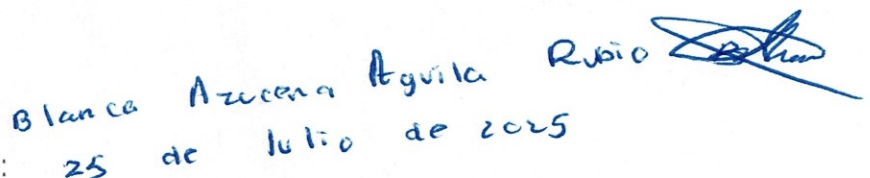 Blanca Azucena Aguila Rubio
: 25 de Julio de 2025